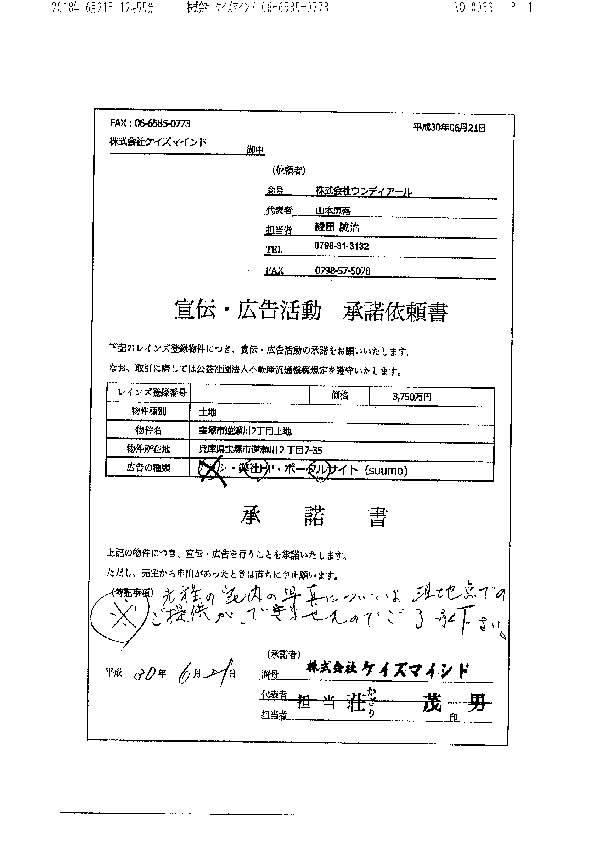 FAX：06-6585-0773
平成30年06月21日
株式会社ケイズマインド
御中
（依頼者）
商号 株式会社ウンディアール
代表者
担当者
TEL 0798-31-3132
FAX 0798-57-5078
宣伝・広告活動 承諾依頼書
下記のレインズ登録物件につき、宣伝・広告活動の承諾をお願いいたします。
なお、取引に際しては公益社団法人不動産流通機構規定を遵守いたします。
レインズ登録番号 価格 3,750万円
物件種別 土地
物件名 宝塚市逆瀬川2丁目土地
物件所在地 兵庫県宝塚市逆瀬川２丁目7-35
広告の種類 チラシ・弊社HP・ポータルサイト（suumo）
承諾書
上記の物件につき、宣伝・広告を行うことを承諾いたします。
ただし、売主から申出があったときは直ちに中止願います。
（特記事項）
の室内の写真については現地点での
ご提供ができませんのでご了承下さい。
（承諾者）
平成 30年 6月 21日
商号 株式会社 ケイズマインド
代表者
担当者 担当 荘 茂男
印